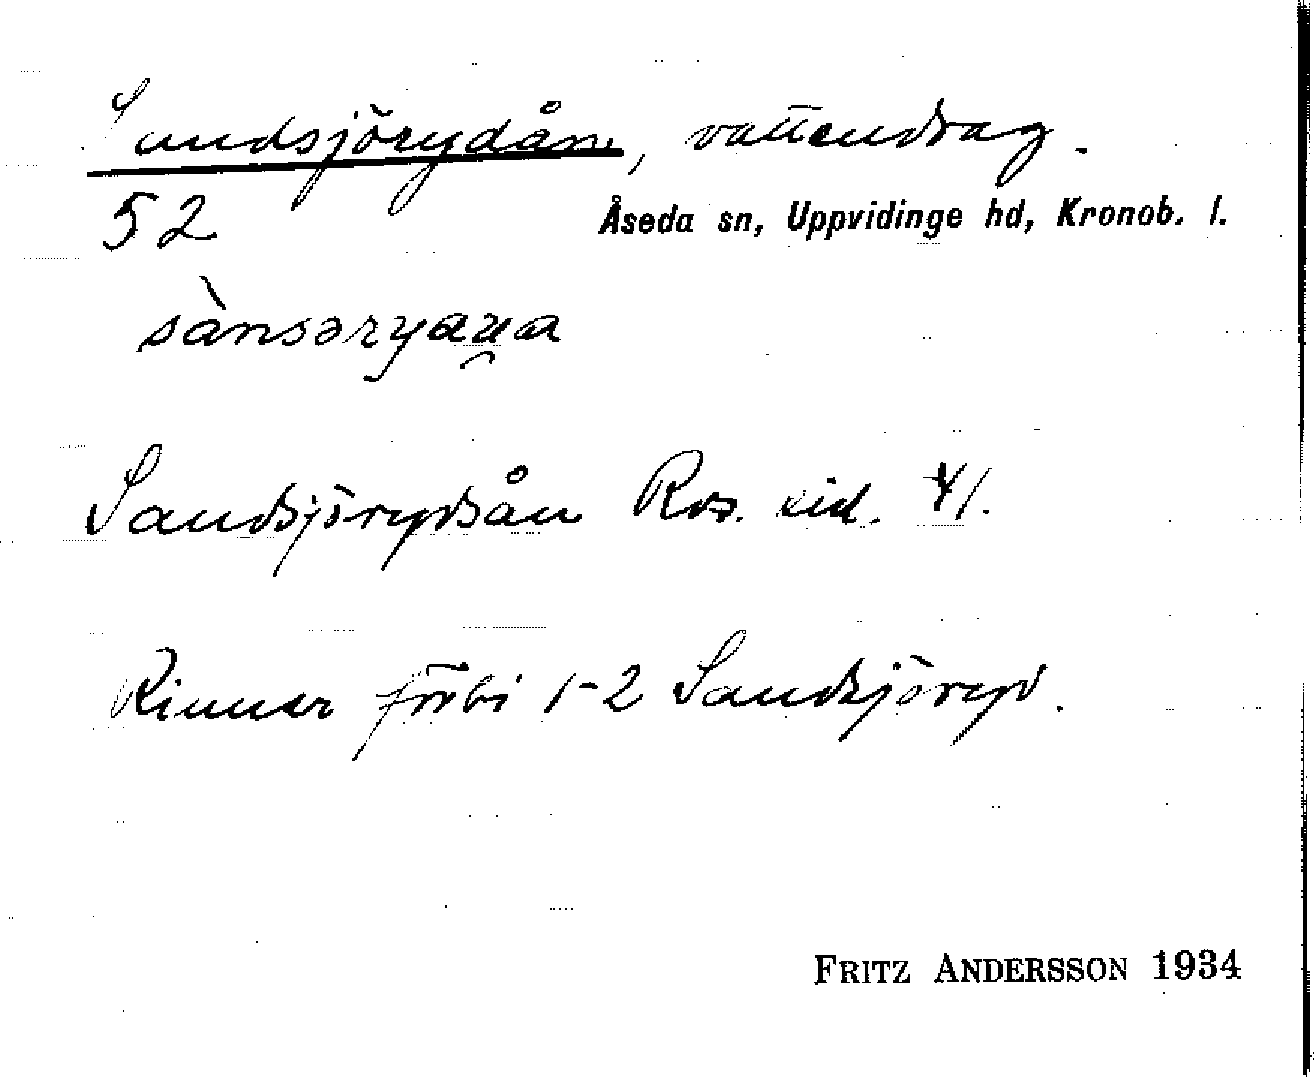 Sandsjörydån, vattendrag.
52 Åseda sn, Uppvidinge hd, Kronob. l.
sànsəryaua
Sandsjörydsån Ros. eid. 4/1.
Rinner förbi 1-2 Sandsjöryd.
FRITZ ANDERSSON 1934